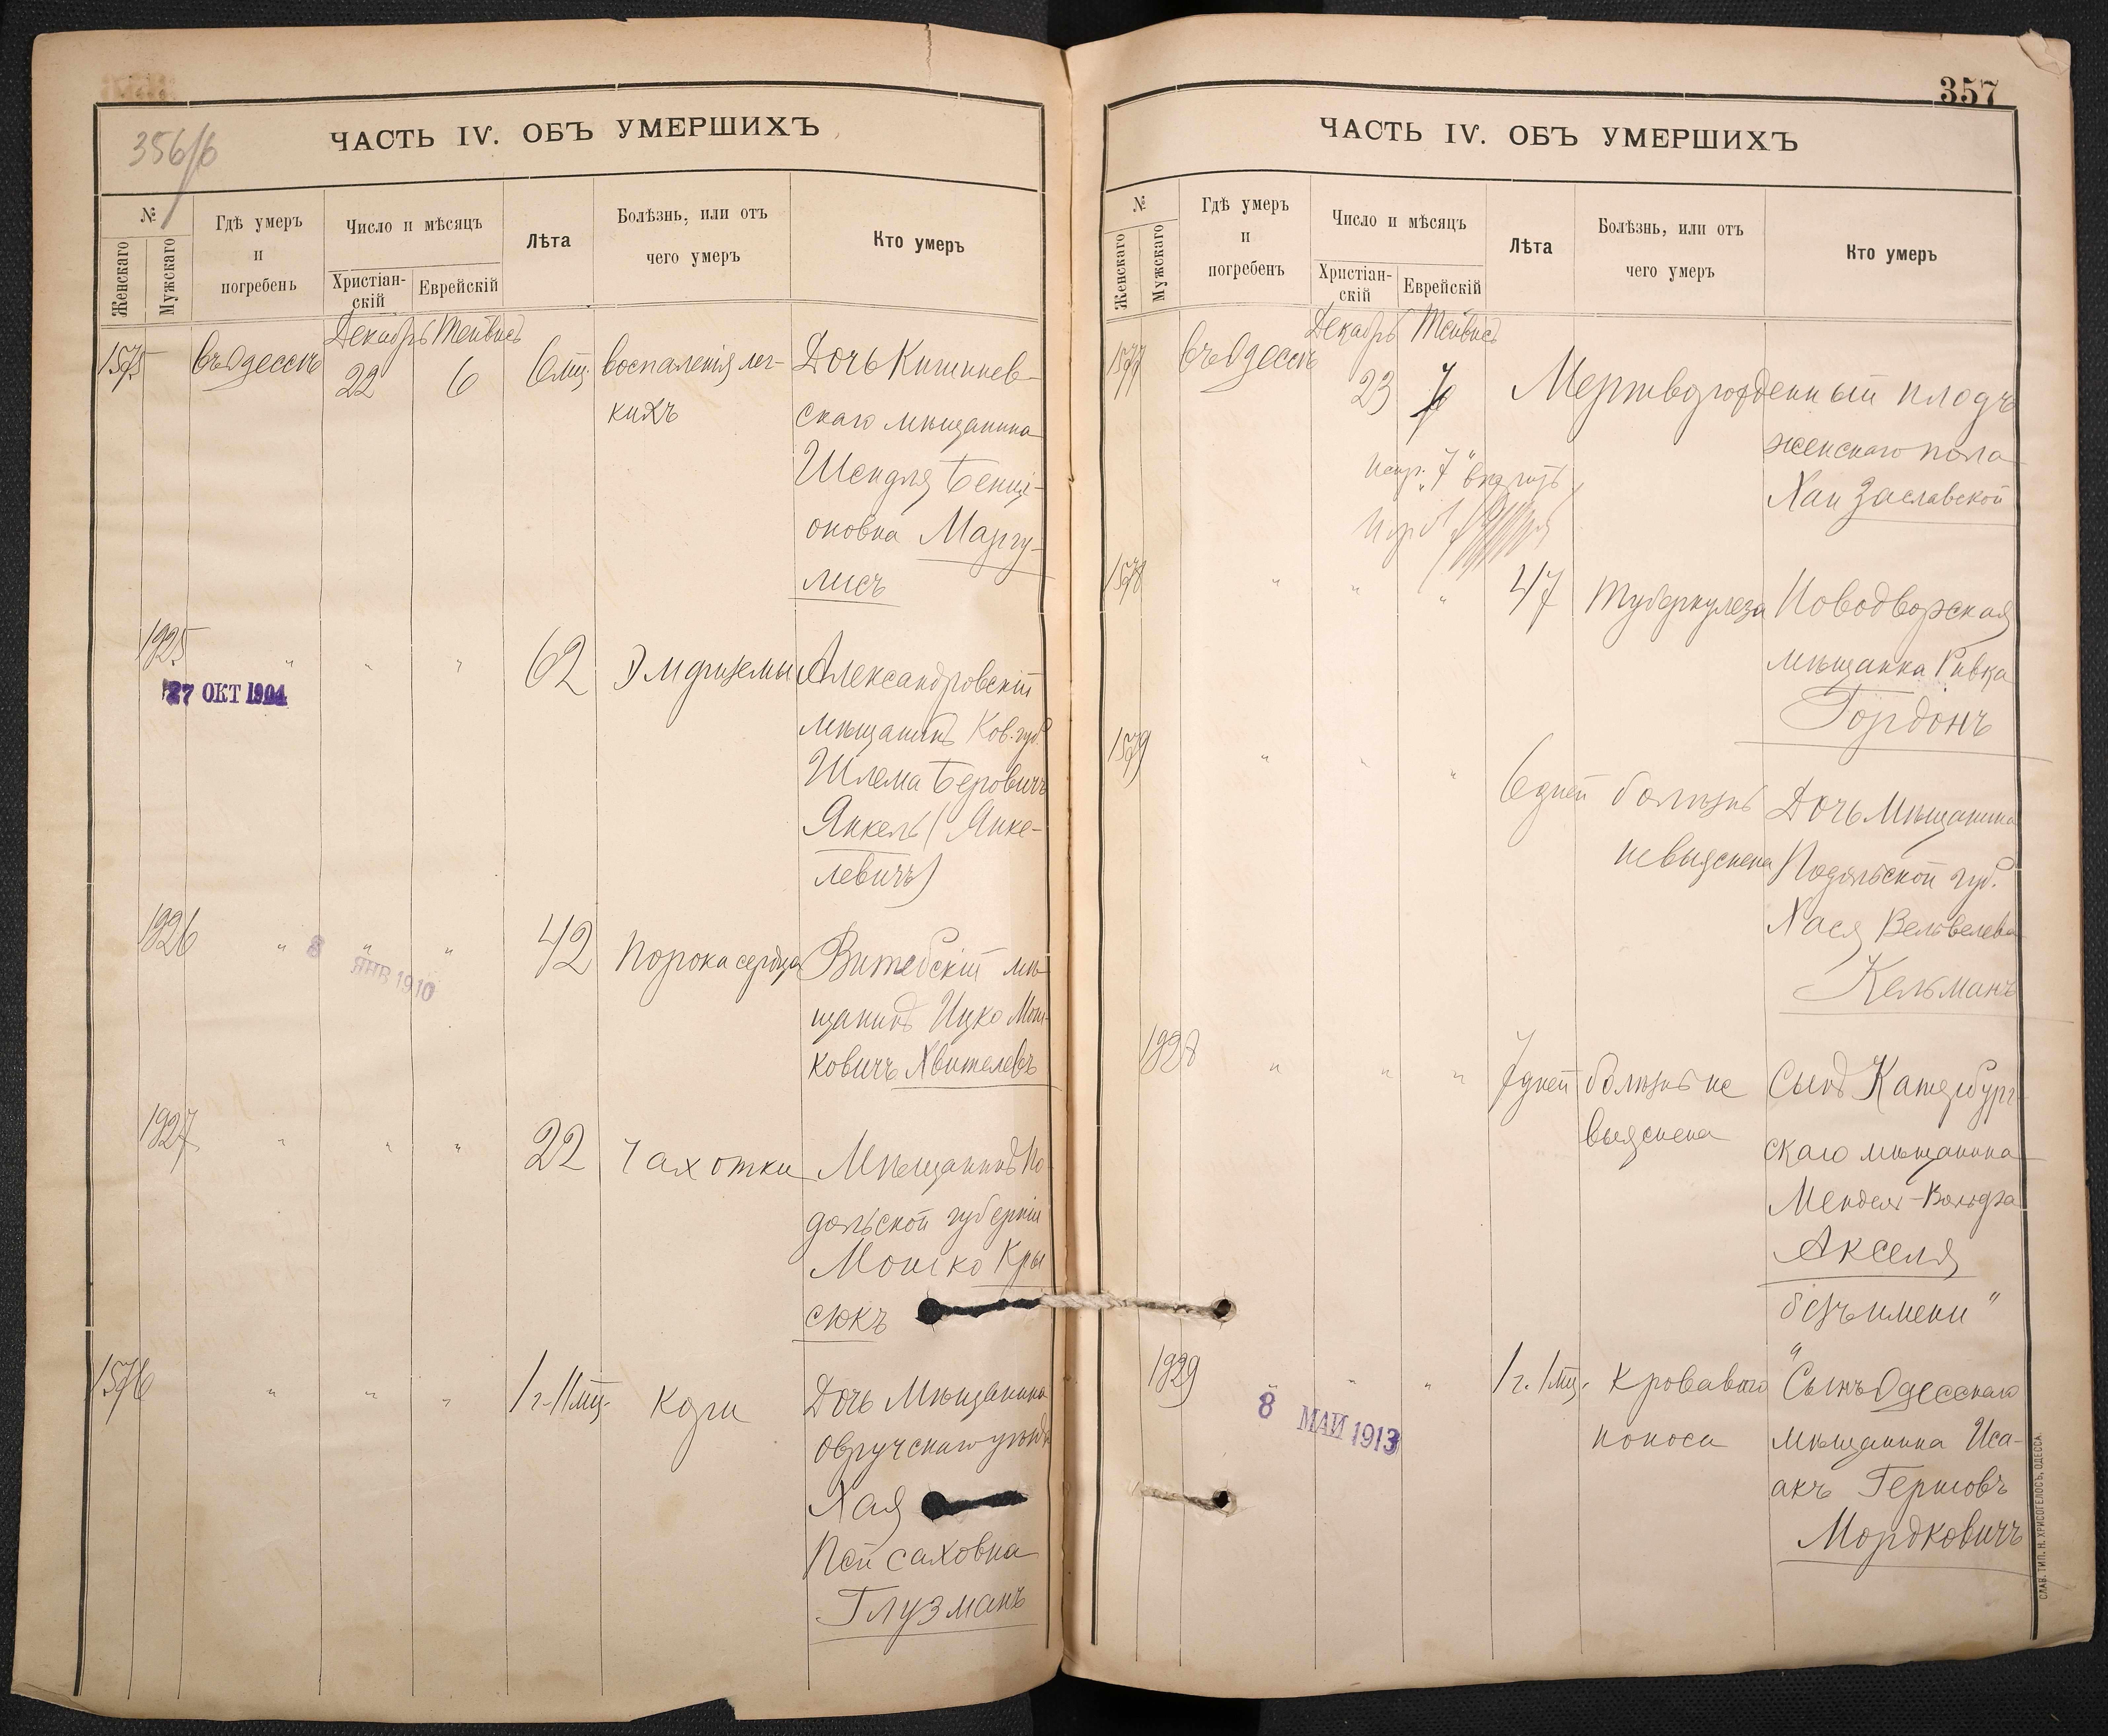 356/б
ЧАСТЬ IV. ОБЪ УМЕРШИХЪ
№
Женскаго
Мужскаго
Гдѣ умеръ
и
погребенъ
Число и мѣсяцъ
Христіан-
скій
Еврейскій
Лѣта
Болѣзнь, или отъ
чего умеръ
Кто умеръ
Декабрь Тейвисъ
1575 Въ Одессѣ 22 6 6 мц. воспаленія лег- Дочь Кишинев-
кихъ скаго мѣщанина
Шендля Бенці-
оновна Маргу-
лисъ
1925 " " " 62 Эмфиземы Александровскій
27 ОКТ 1904
мѣщанинъ Ков. губ.
Шлема Беровичъ
Янкель (Янке-
левичъ)
1926 " " " 42 Порока сердца Витебскій мѣ-
8 ЯНВ 1910
щанинъ Ицко Мош-
ковичъ Хвителевъ
1927 " " " 22 Чахотки Мѣщанинъ По-
дольской губерніи
Мошко Кры
сюкъ
1576 " " " 1 г. 11 мц. Кори Дочь Мѣщанина
Овручскаго уѣзда
Хая
Пейсаховна
Глузманъ
357
ЧАСТЬ IV. ОБЪ УМЕРШИХЪ
№
Женскаго
Мужскаго
Гдѣ умеръ
и
погребенъ
Число и мѣсяцъ
Христіан-
скій
Еврейскій
Лѣта
Болѣзнь, или отъ
чего умеръ
Кто умеръ
Декабрь Тейвисъ
1577 Въ Одессѣ 23 7 Мертворожденный плодъ
женскаго пола
Хаи Заславской
Испр. "7" вѣрить
1578 " " " 47 Туберкулеза Новодворская
мѣщанка Ривка
Гордонъ
1579 " " " 6 дней болѣзнь Дочь Мѣщанина
невыяснена Подольской губ.
Хася Вельвелева
Кельманъ
1928 " " " 7 дней болѣзнь не Сынъ Катербург-
выяснена скаго мѣщанина
Менделя-Вольфа
Акселя
"безъ имени"
1929 " " " 1 г. 1 мц. Кроваваго Сынъ Одесскаго
8 МАЙ 1913
поноса мѣщанина Иса-
акъ Гершовъ
Мордковичъ
СЛАВ. ТИП. Н. ХРИСОГЕЛОСЪ, ОДЕССА.